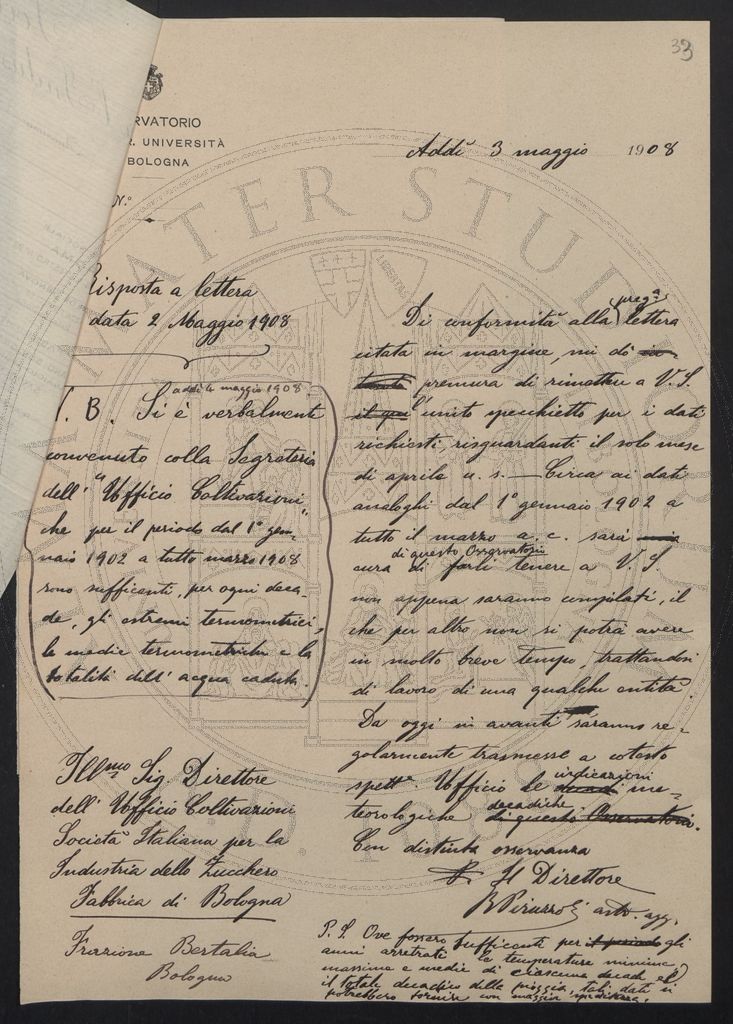 33
RVATORIO
R. UNIVERSITÀ
BOLOGNA
N.°
Addì 3 maggio 1908
Risposta a lettera
data 2 Maggio 1908
addì 4 maggio 1908.
N. B. Si è verbalmente
convenuto colla Segreteria
dell' "Ufficio Coltivazioni"
che per il periodo dal 1° gen-
naio 1902 a tutto marzo 1908
sono sufficenti, per ogni deca-
de, gli estremi termometrici,
le medie termometriche e la
totalità dell' acqua caduta.
Ill.mo Sig. Direttore
dell' Ufficio Coltivazioni
Società Italiana per la
Industria dello Zucchero
Fabbrica di Bologna
Frazione Bertalia
Bologna
Di conformità alla preg.a lettera
citata in margine, mi dò
premura di rimettere a V. S.
il qui unito specchietto per i dati
richiesti, risguardanti il solo mese
di aprile u. s. — Circa ai dati
analoghi dal 1° gennaio 1902 a
tutto il marzo a. c. sarà mia
di questo Osservatorio
cura di farli tenere a V. S.
non appena saranno compilati, il
che per altro non si potrà avere
in molto breve tempo, trattandosi
di lavoro di una qualche entità.
Da oggi in avanti saranno re-
golarmente trasmesse a cotesto
spett.e Ufficio le decadi indicazioni me-
teorologiche decadiche di questo Osservatorio.
Con distinta osservanza
p. Il Direttore
R Pirazzoli astr. agg.
P. S. Ove fossero sufficenti per il periodo gli
anni arretrati le temperature minime,
massime e medie di ciascuna decade ed
il totale decadico della pioggia, tali dati si
potrebbero fornire con maggior speditezza.
ALMA MATER STUDIORUM
A.D. 1088
LIBERTAS